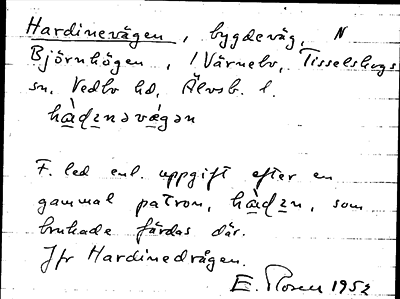 Hardinevägen, bygdeväg, N
Björnhögen, i Värnebo, Tisselskogs
sn, Vedbo hd, Älvsb. l.
hàdɪnəvæ̀gən
F. led enl. uppgift efter en
gammal patron, hàdɪn, som
brukade färdas där.
Jfr Hardinedrågen.
E. Rosen 1952